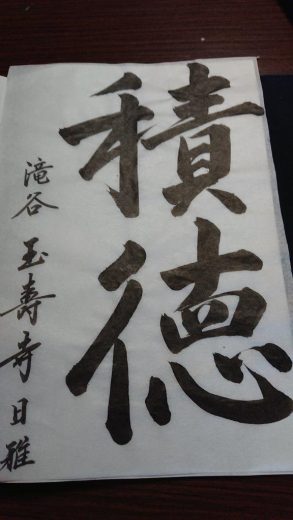 積徳
滝谷 玉壽寺 日雅